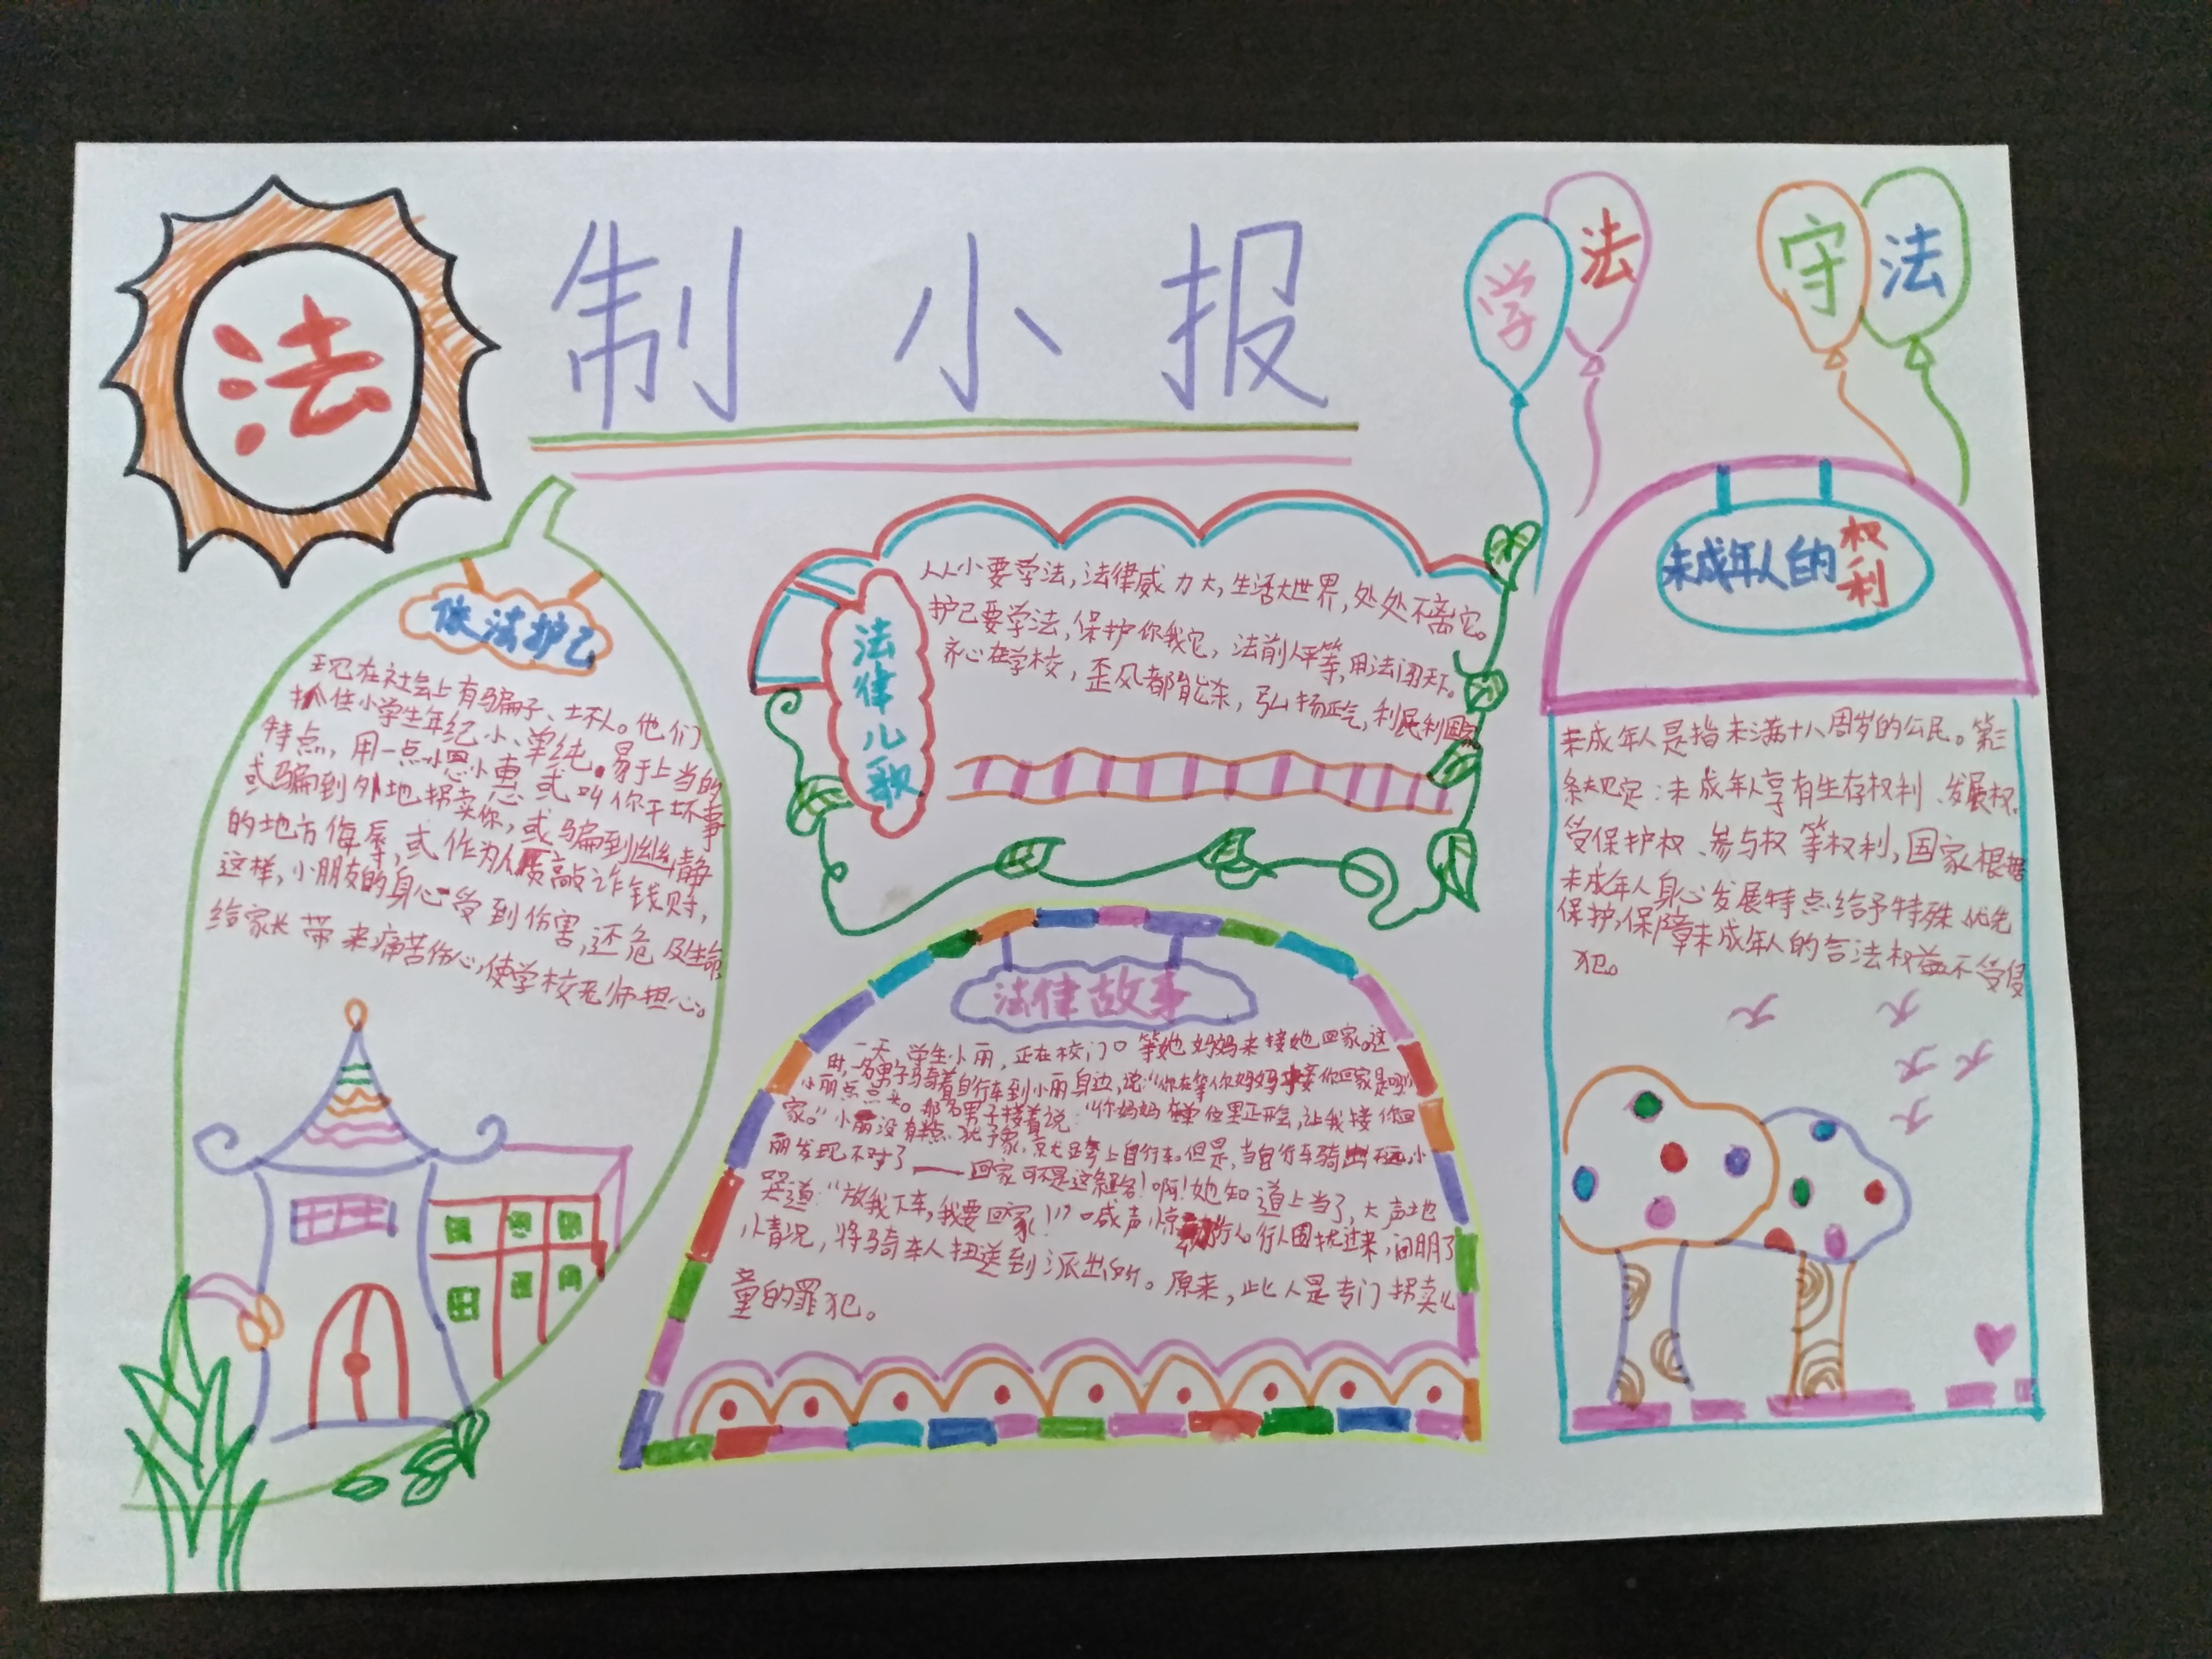 法制小报
学法
守法
依法护己
现在社会上有骗子、坏人。他们
抓住小学生年纪小、单纯。易于上当的
特点，用一点小恩小惠 或叫你干坏事
或骗到外地拐卖你，或骗到幽静
的地方侮辱，或作为人质敲诈钱财，
这样，小朋友的身心受到伤害，还危及生命，
给家长带来痛苦伤心，使学校老师担心。
法律儿歌
人人小要学法，法律威力大，生活大世界，处处不离它。
护己要学法，保护你我它，法前人平等，用法闯天下。
齐心在学校，歪风都能杀，弘扬正气，利民利国家
未成年人的权利
未成年人是指未满十八周岁的公民。第三
条规定：未成年人享有生存权利、发展权、
受保护权、参与权等权利，国家根据
未成年人身心发展特点给予特殊、优先
保护，保障未成年人的合法权益不受侵
犯。
法律故事
一天，学生小丽，正在校门口等她妈妈来接她回家。这
时，一名男子骑着自行车到小丽身边，说：“你在等你妈妈接你回家是吗
小丽点点头。那名男子接着说：“你妈妈在单位里正开会，让我接你回
家。”小丽没有点犹予家，就跨上自行车。但是，当自行车骑出不远，小
丽发现不对了——回家可不是这条路！啊！她知道上当了，大声地
哭道：“放我下车，我要回家！”喊声惊动行人行人围扰过来，问明了
情况，将骑车人扭送到派出所。原来，此人是专门拐卖儿
童的罪犯。